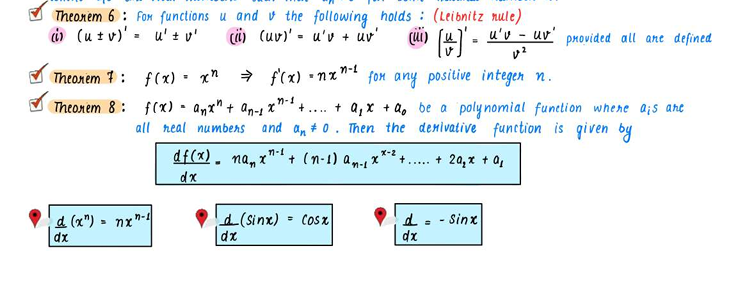 Theorem 6 : For functions u and v the following holds : (Leibnitz rule)
(i) (u ± v)' = u' ± v' (ii) (uv)' = u'v + uv' (iii) [u/v]' = (u'v - uv')/v² provided all are defined
Theorem 7 : f(x) = xⁿ ⇒ f'(x) = nxⁿ⁻¹ for any positive integer n.
Theorem 8 : f(x) = aₙxⁿ + aₙ₋₁xⁿ⁻¹ + .... + a₁x + a₀ be a polynomial function where aᵢs are
all real numbers and aₙ ≠ 0 . Then the derivative function is given by
df(x)/dx = naₙxⁿ⁻¹ + (n-1) aₙ₋₁xˣ⁻² + ..... + 2a₂x + a₁
d/dx (xⁿ) = nxⁿ⁻¹ d/dx (Sinx) = Cosx d/dx = - Sinx